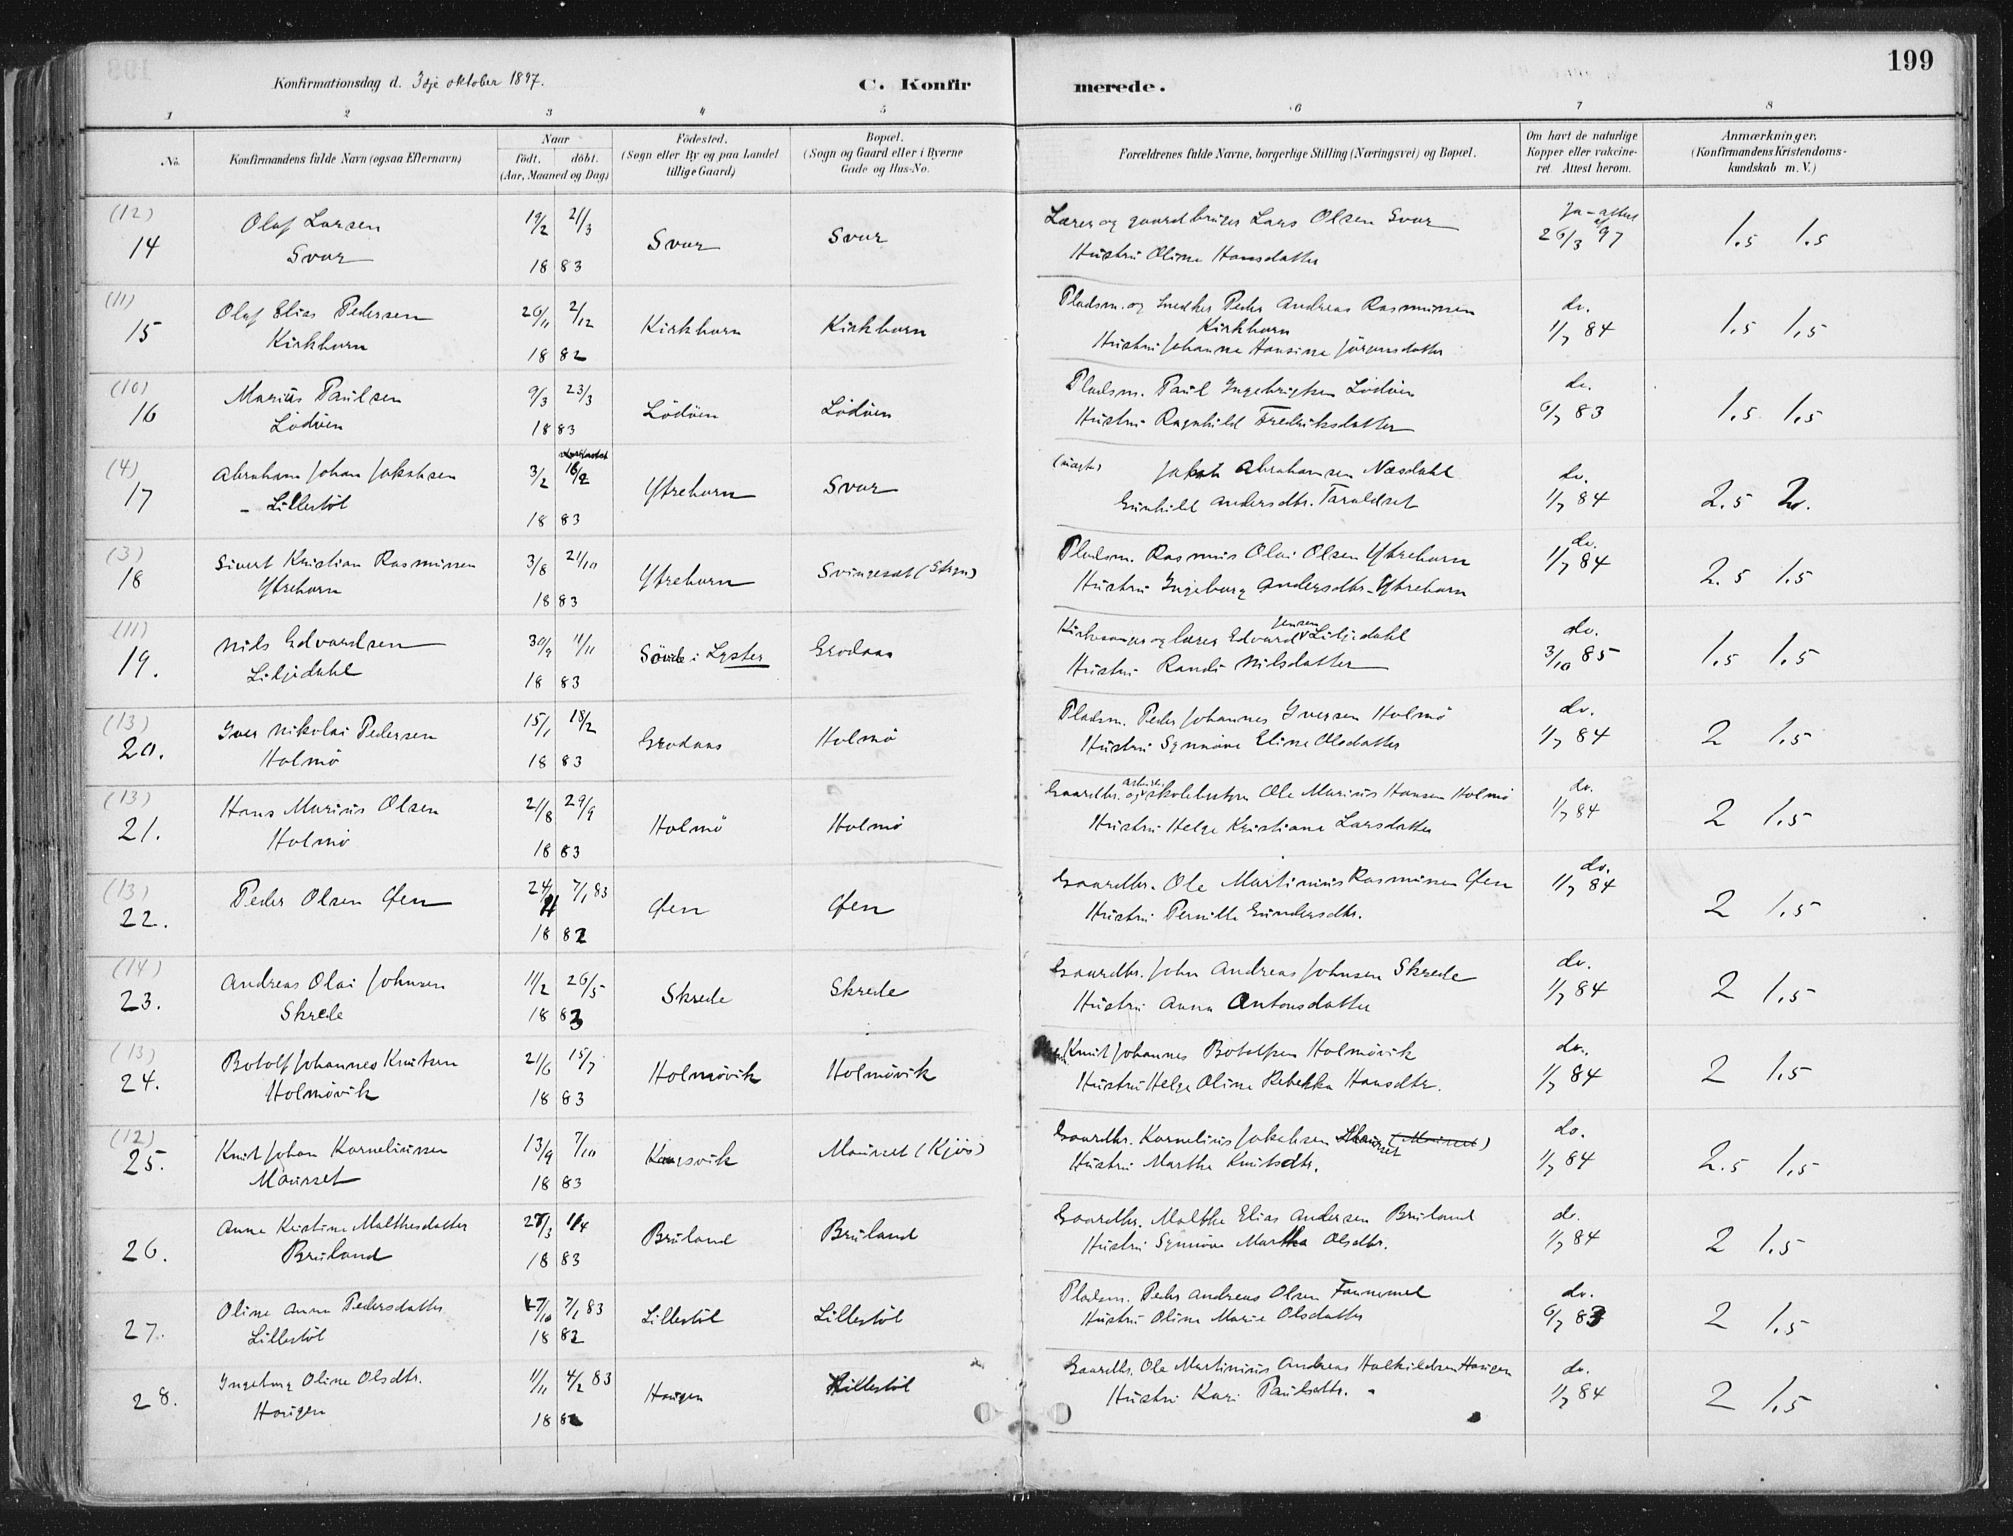 199
Konfirmationsdag d. 3dje oktober 1897.
C. Konfirmerede.
1 2 3 4 5 6 7 8
No.
Konfirmandens fulde Navn (ogsaa Efternavn)
Naar
født. døbt.
(Aar, Maaned og Dag)
Fødested.
(Sogn eller By og paa Landet
tillige Gaard)
Bopæl.
(Sogn og Gaard eller i Byerne
Gade og Hus-No.
Forældrenes fulde Navne, borgerlige Stilling (Næringsvei) og Bopæl.
Om havt de naturlige
Kopper eller vakcine-
ret. Attest herom.
Anmærkninger.
(Konfirmandens Kristendoms-
kundskab m. V.)
(12) 14 Olaf Larsen Svor 19/2 21/3 1883 Svor Svor
Lærer og gaardbruger Lars Olsen Svor
Hustru Oline Hansdatter
Ja - attest af 26/3 97 1.5 1.5
(11) 15 Olaf Elias Pedersen Kirkhorn 26/11 2/12 1882 Kirkhorn Kirkhorn
Pladsm. og Snedker Peder Andreas Rasmussen
Kirkhorn
Hustru Johanne Hansine Jörgensdatter
do. 1/7 84 1.5 1.5
(10) 16 Marius Paulsen Lödöen 9/3 23/3 1883 Lödöen Lödöen
Pladsm. Paul Ingebrigtsen Lödöen
Hustru Ragnhild Fredriksdatter
do. 6/7 83 1.5 1.5
(4) 17 Abraham Johan Jakobsen - Lillestöl 3/2 16/2 1883 Ytrehorn Svor
(uægte) Jakob Abrahamsen Næsdahl
Gunhild Andersdtr. Taraldset
do. 1/7 84 2.5 2.
(3) 18 Sivert Kristian Rasmussen Ytrehorn 3/8 21/10 1883 Ytrehorn Svingeset (Stryn)
Pladsm. Rasmus Olai Olsen Ytrehorn
Hustru Ingeborg Andersdtr. Ytrehorn
do. 1/7 84 2.5 1.5
(11) 19. Nils Edvardsen Liljedahl 30/9 11/11 1883 i Lyster Grodaas
Kirkesanger og lærer Edvard Jensen Liljedahl
Hustru Randi Nilsdatter
do. 3/10 85 1.5 1.5
(13) 20. Iver Nikolai Pedersen Holmö 15/1 18/2 1883 Grodaas Holmö
Pladsm. Peder Johannes Iversen Holmö
Hustru Synnöve Eline Olsdatter
do. 1/7 84 2 1.5
(13) 21. Hans Marius Olsen Holmö 21/8 29/9 1883 Holmö Holmö
Gaardbr. og skolebestyr. Ole Marius Hansen Holmö
Hustru Helge Kristiane Larsdatter
do. 1/7 84 2 1.5
(13) 22. Peder Olsen Øen 24/11 7/1 83 1882 Øen Øen
Gaardbr. Ole Martinius Rasmussen Øen
Hustru Pernille Gundersdtr.
do. 1/7 84 2 1.5
(14) 23. Andreas Olai Johnsen Skrede 11/2 26/5 1883 Skrede Skrede
Gaardbr. John Andreas Johnsen Skrede
Hustru Anna Antonsdatter
do. 1/7 84 2 1.5
(13) 24. Botolf Johannes Knutsen Holmövik 21/6 15/7 1883 Holmövik Holmövik
Knut Johannes Botolfsen Holmövik
Hustru Helge Oline Rebekka Hansdtr.
do. 1/7 84 2 1.5
(12) 25. Knut Johan Korneliussen Maurset 13/9 7/10 1883 Maurset (Kjøs)
Gaardbr. Kornelius Jakobsen Maurset (Maurset)
Hustru Marthe Knutsdtr.
do. 1/7 84 2.5 1.5
26. Anne Kristine Malthesdatter Bruland 27/3 1/4 1883 Bruland Bruland
Gaardbr. Malthe Elias Andersen Bruland
Hustru Synnöve Martha Olsdtr.
do. 1/7 84 2 1.5
27. Oline Anna Pedersdatter Lillestöl 27/10 7/1 83 1882 Lillestöl Lillestöl
Pladsm. Peder Andreas Olsen Fannemel
Hustru Oline Marie Olsdatter
do. 6/7 83 2 1.5
28. Ingeborg Oline Olsdtr. Haugen 11/11 4/2 83 1882 Haugen Lillestöl
Gaardbr. Ole Martinius Andreas Halkildsen Haugen
Hustru Kari Paulsdtr.
do. 1/7 84 2 1.5